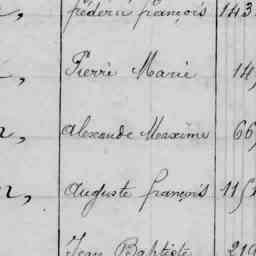 frédéric françois 143
Pierre Marie 14
alexandre Maxime 66
auguste françois 115
Jean Baptiste 219